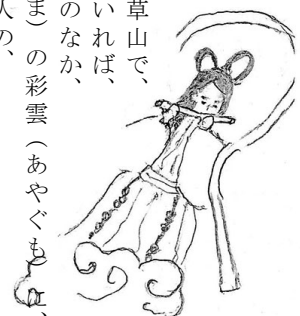 草山で、
いれば、
のなか、
ま）の彩雲（あやぐも）に、
人の、